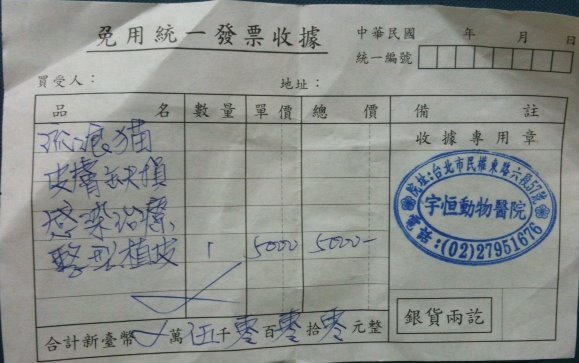 免用統一發票收據
中華民國 年 月 日
統一編號
買受人： 地址：
品 名 數量 單價 總 價 備 註
收據專用章
流浪貓
皮膚缺損
感染治療
整形植皮 1 5000 5000-
院址:台北市民權東路六段57號
宇恒動物醫院
電話:(02)27951676
合計新臺幣 萬 伍 千 零 百 零 拾 零 元整
銀貨兩訖